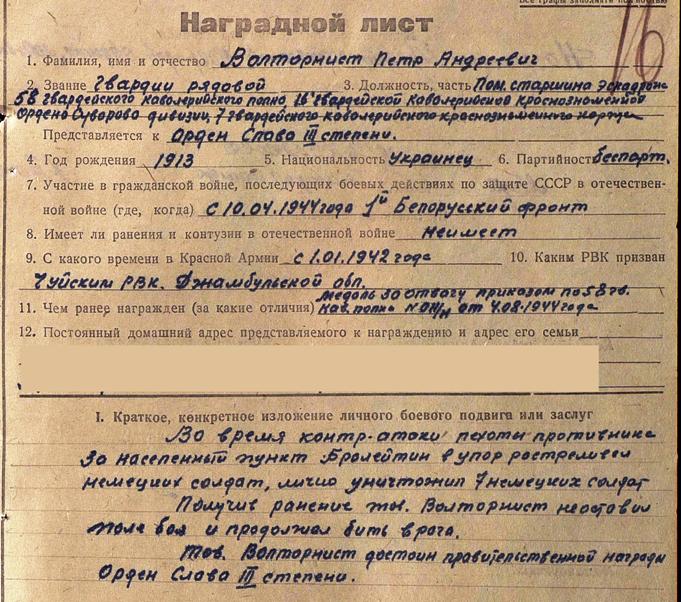 Наградной лист
16
1. Фамилия, имя и отчество Валторнист Петр Андреевич
2. Звание Гвардии рядовой 3. Должность, часть Пом. старшина эскадрона
58 гвардейского каволерийского полка, 16 гвардейской каволерийской краснознаменной
ордена Суворова дивизии, 7 гвардейского каволерийского краснознаменного корпуса
Представляется к Орден Слава III степени.
4. Год рождения 1913 5. Национальность Украинец 6. Партийность беспарт.
7. Участие в гражданской войне, последующих боевых действиях по защите СССР в отечествен-
ной войне (где, когда) с 10.04.1944 года 1й Белорусский фронт
8. Имеет ли ранения и контузии в отечественной войне неимеет
9. С какого времени в Красной Армии с 1.01.1942 года 10. Каким РВК призван
Чуйским РВК. Джамбульской обл.
медаль за отвагу приказом по 58 гв.
11. Чем ранее награжден (за какие отличия) кав. полка от 4.08.1944 года
12. Постоянный домашний адрес представляемого к награждению и адрес его семьи
I. Краткое, конкретное изложение личного боевого подвига или заслуг
Во время контр-атаки пехоты противника
за населенный пункт Бролейтин в упор ростреливал
немецких солдат, лично уничтожил 7 немецких солдат
Получив ранение тов. Волторнист неоставил
поле боя и продолжал бить врага.
Тов. Волторнист достоин правительственной награды
Орден Слава III степени.